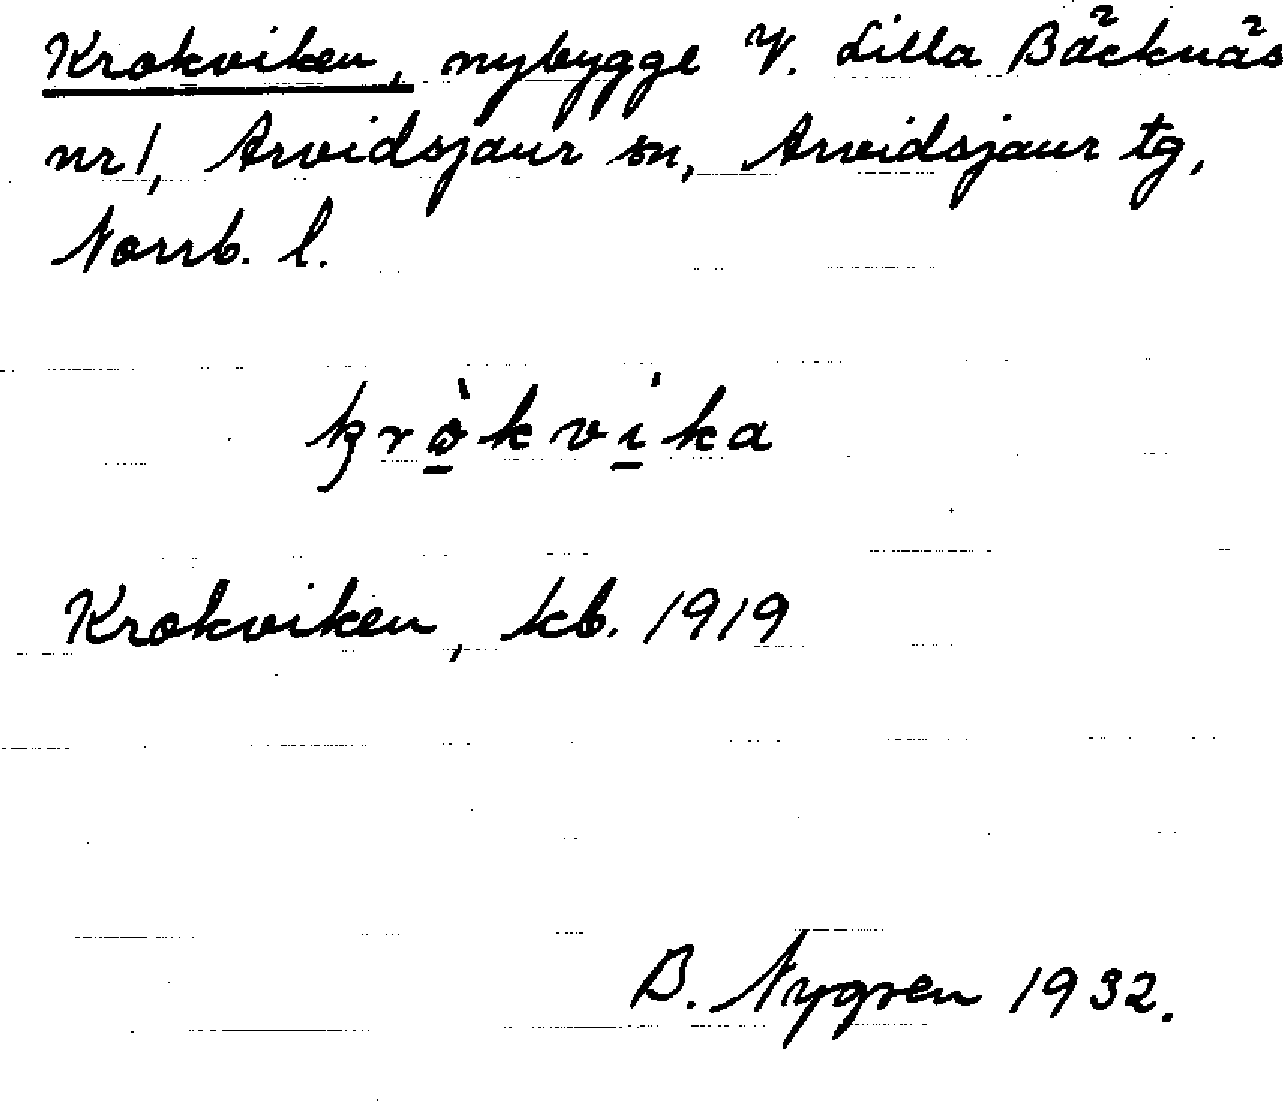 Krokviken, nybygge V. Lilla Bäcknäs
nr 1, Arvidsjaur sn, Arvidsjaur tg,
Norrb. l.
krò̱kvi̱ka
Krokviken, kb. 1919
B. Nygren 1932.